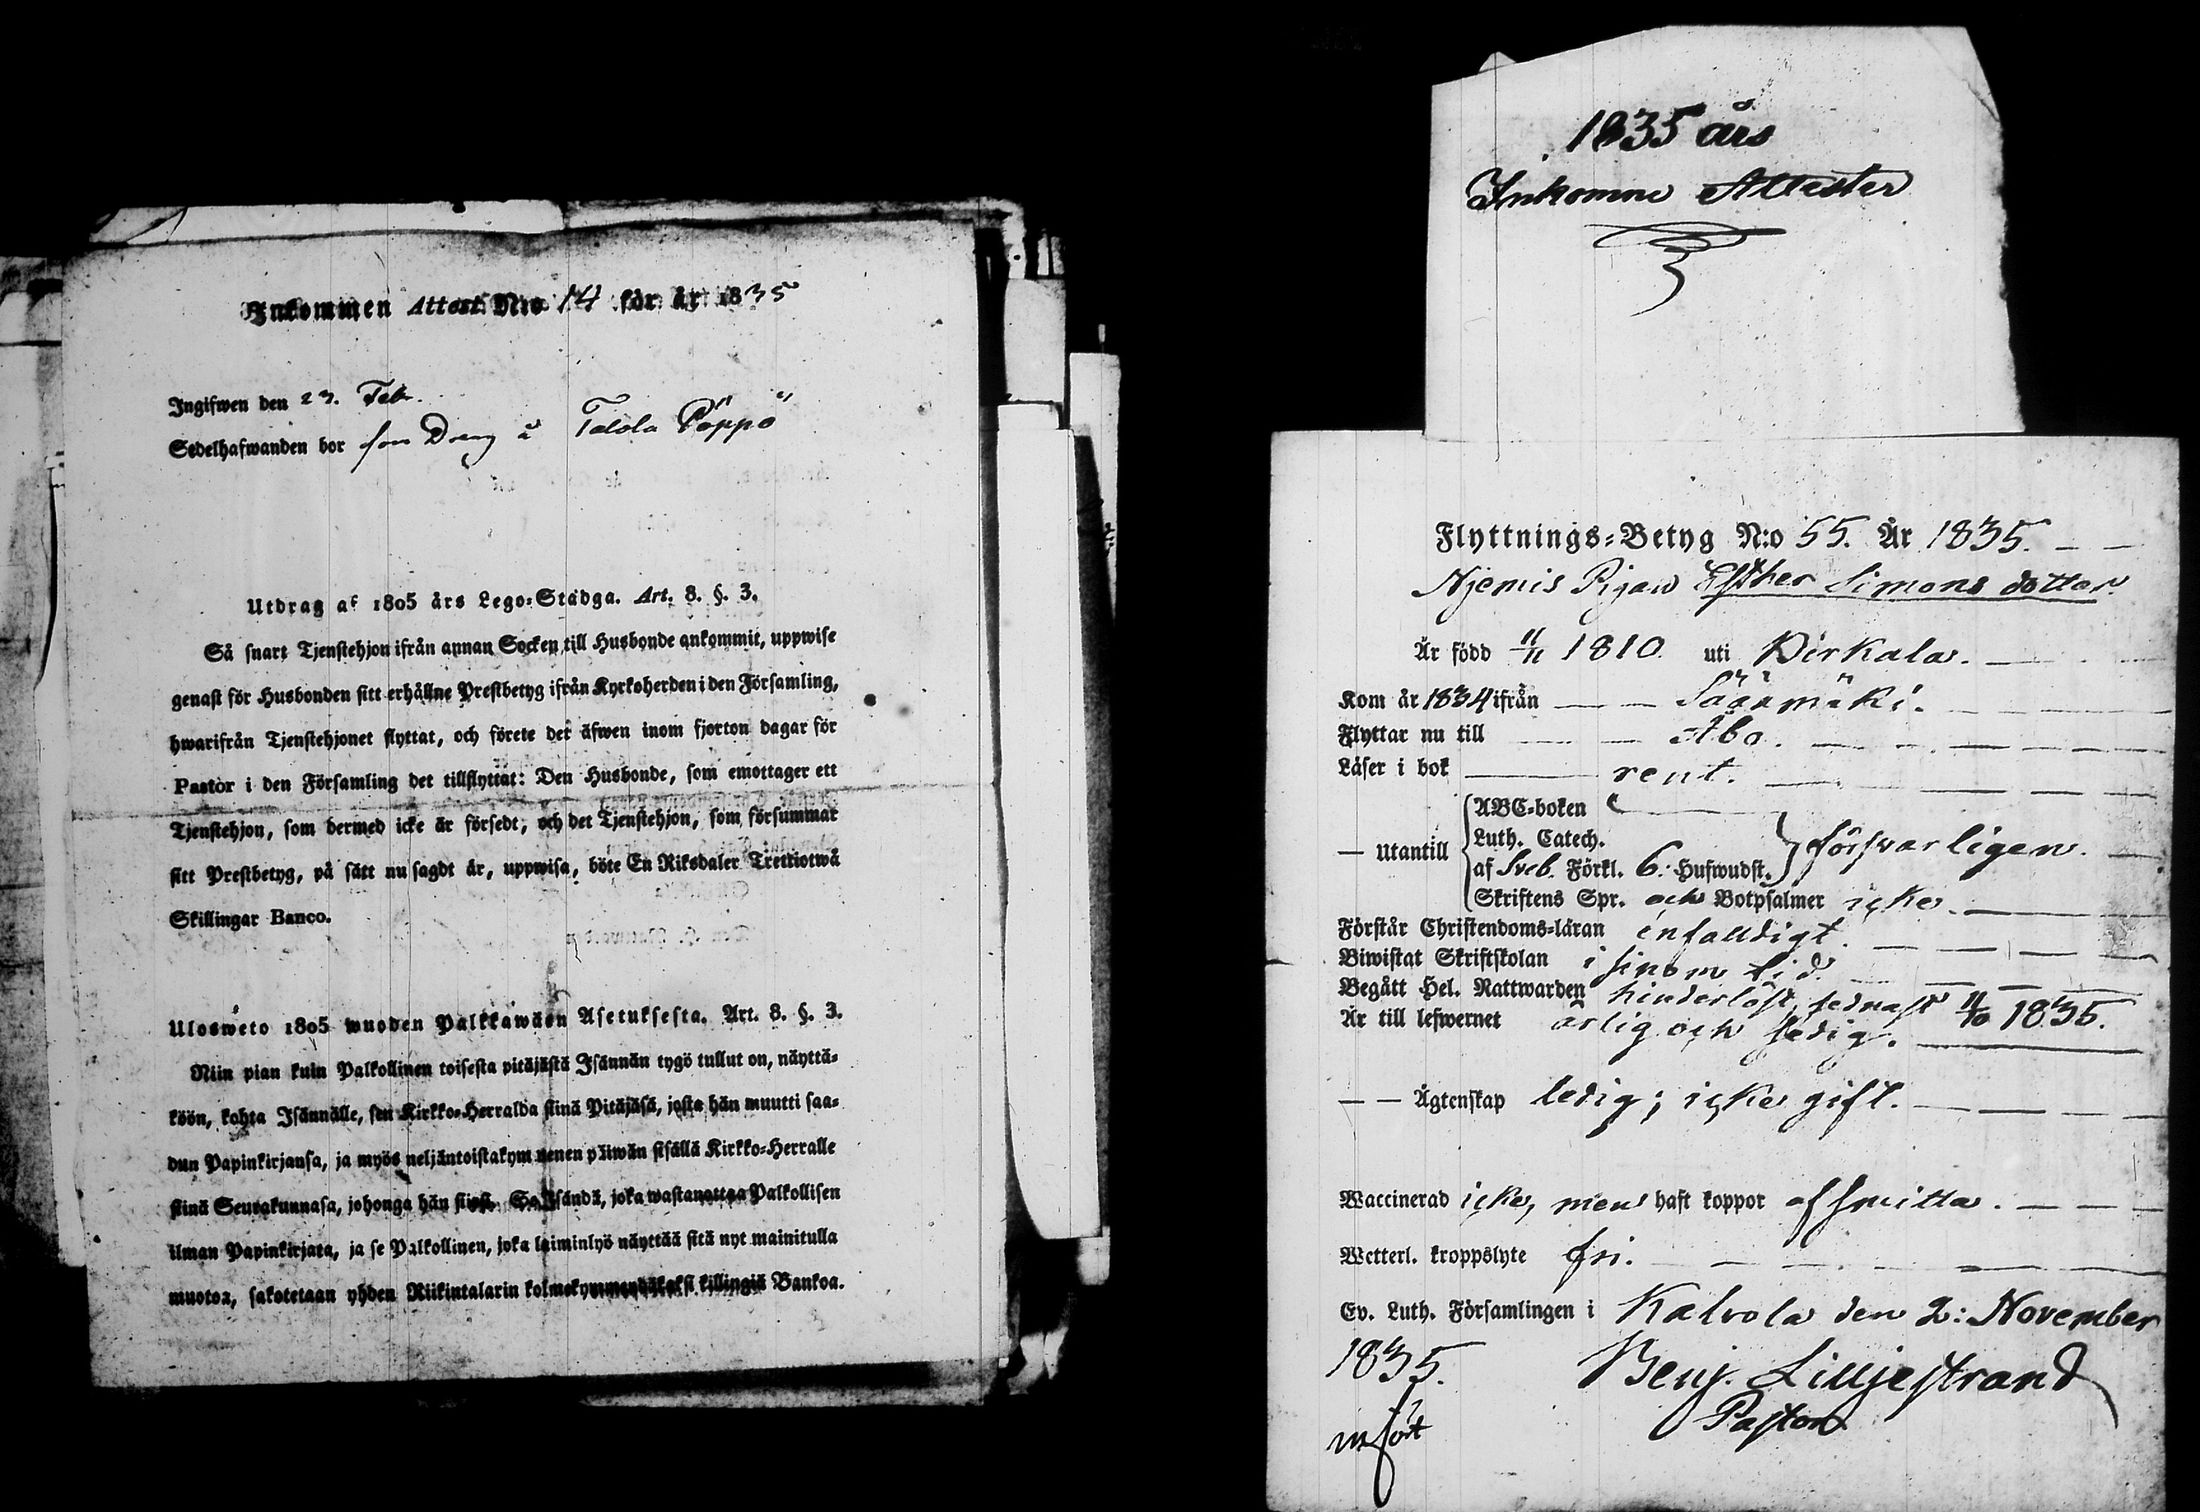 Inkommen Attest. N:o 14 för år 1835
Ingifwen den 23. Febr.
Sedelhafwanden bor som Dreng å Talola Päppö
Utdrag af 1805 års Lego-Stadga. Art. 8. §. 3.
Så snart Tjenstehjon ifrån annan Socken till Husbonde ankommit, uppwise
genast för Husbonden sitt erhållne Prestbetyg ifrån Kyrkoherden i den Församling,
hwarifrån Tjenstehjonet flyttat, och förete det äfwen inom fjorton dagar för
Pastor i den Församling det tillflyttat: Den Husbonde, som emottager ett
Tjenstehjon, som dermed icke är försedt, och det Tjenstehjon, som försummar
sitt Prestbetyg, på sätt nu sagdt är, uppwisa, böte En Riksdaler Trettiotwå
Skillingar Banco.
Ulosweto 1805 wuoden Palkkawäen Asetuksesta. Art. 8. §. 3.
Niin pian kuin Palkollinen toisesta pitäjästä Isännän tygö tullut on, näyttä-
köön, kohta Isännälle, sen Kirkko-Herralda siinä Pitäjäsä, josta hän muutti saa-
dun Papinkirjansa, ja myös neljäntoistakymmenen päiwän sisällä Kirkko-Herralle
siinä Seurakunnasa, johonga hän siirsi. Se Isändä, joka wastanottaa Palkollisen
ilman Papinkirjata, ja se Palkollinen, joka laiminlyö näyttää sitä nyt mainitulla
muotoa, sakotetaan yhden Riikintalarin kolmekymmendäkaksi killingiä Bankoa.
1835 års
Inkomne Attester
Flyttnings-Betyg N:o 55. År 1835.
Njemis Pigan Esther Simons dotter.
Är född 11/11 1810. uti Birkala.
Kom år 1834 ifrån Sääxmäki.
Flyttar nu till Åbo.
Läser i bok rent.
— Utantill
ABC-boken
Luth. Catech.
af Sveb. Förkl. 6: Hufwudst. försvarligen.
Skriftens Spr. och Botpsalmer icke.
Förstår Christendoms-läran enfalldigt.
Biwistat Skriftskolan i sinom tid.
Begått Hel. Nattwarden hinderlöst, sednast 11/10 1835.
Är till lefwernet ärlig och sedig.
— — Ägtenskap ledig; icke gift.
Waccinerad icke, men haft koppor af smitta.
Wetterl. kroppslyte fri.
Ev. Luth. Församlingen i Kalvola den 2: November
1835.
Benj. Lilljestrand
Pastor
infört